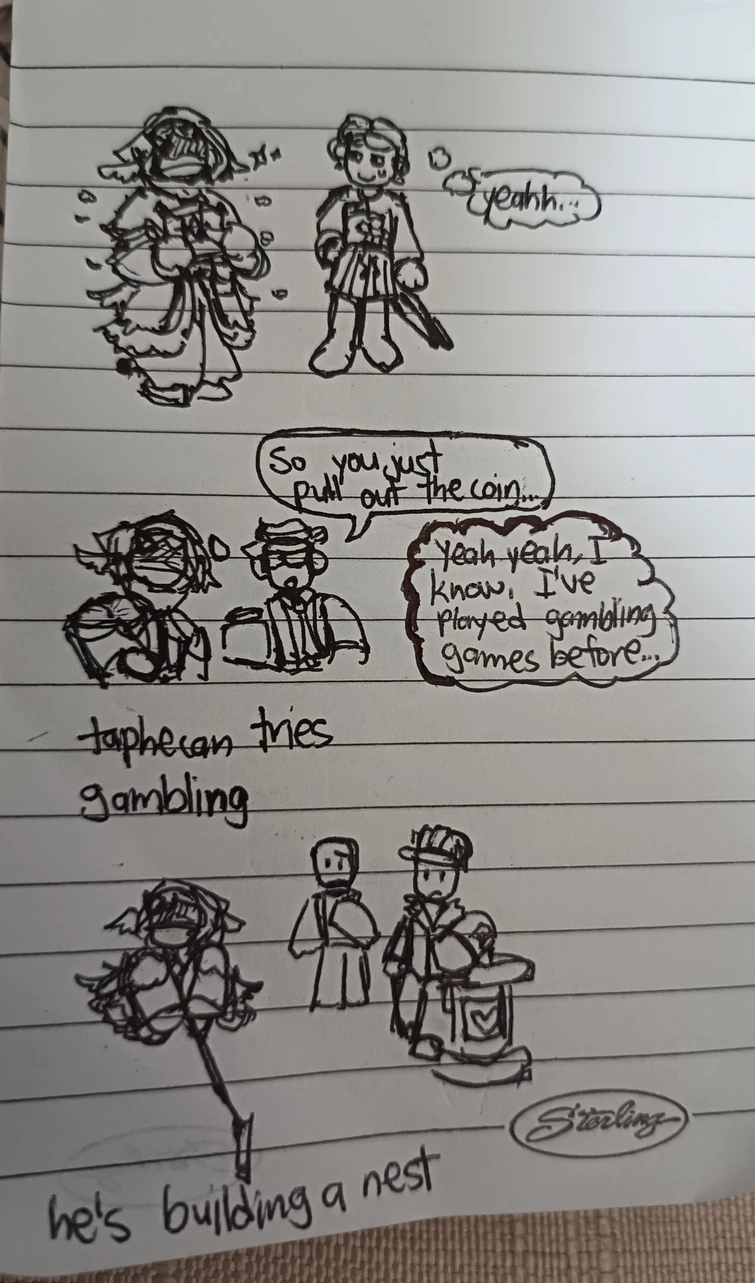 yeahh...
So you just
pull out the coin...
Yeah yeah, I
know. I've
played gambling
games before...
taphecan tries
gambling
Sterling
he's building a nest